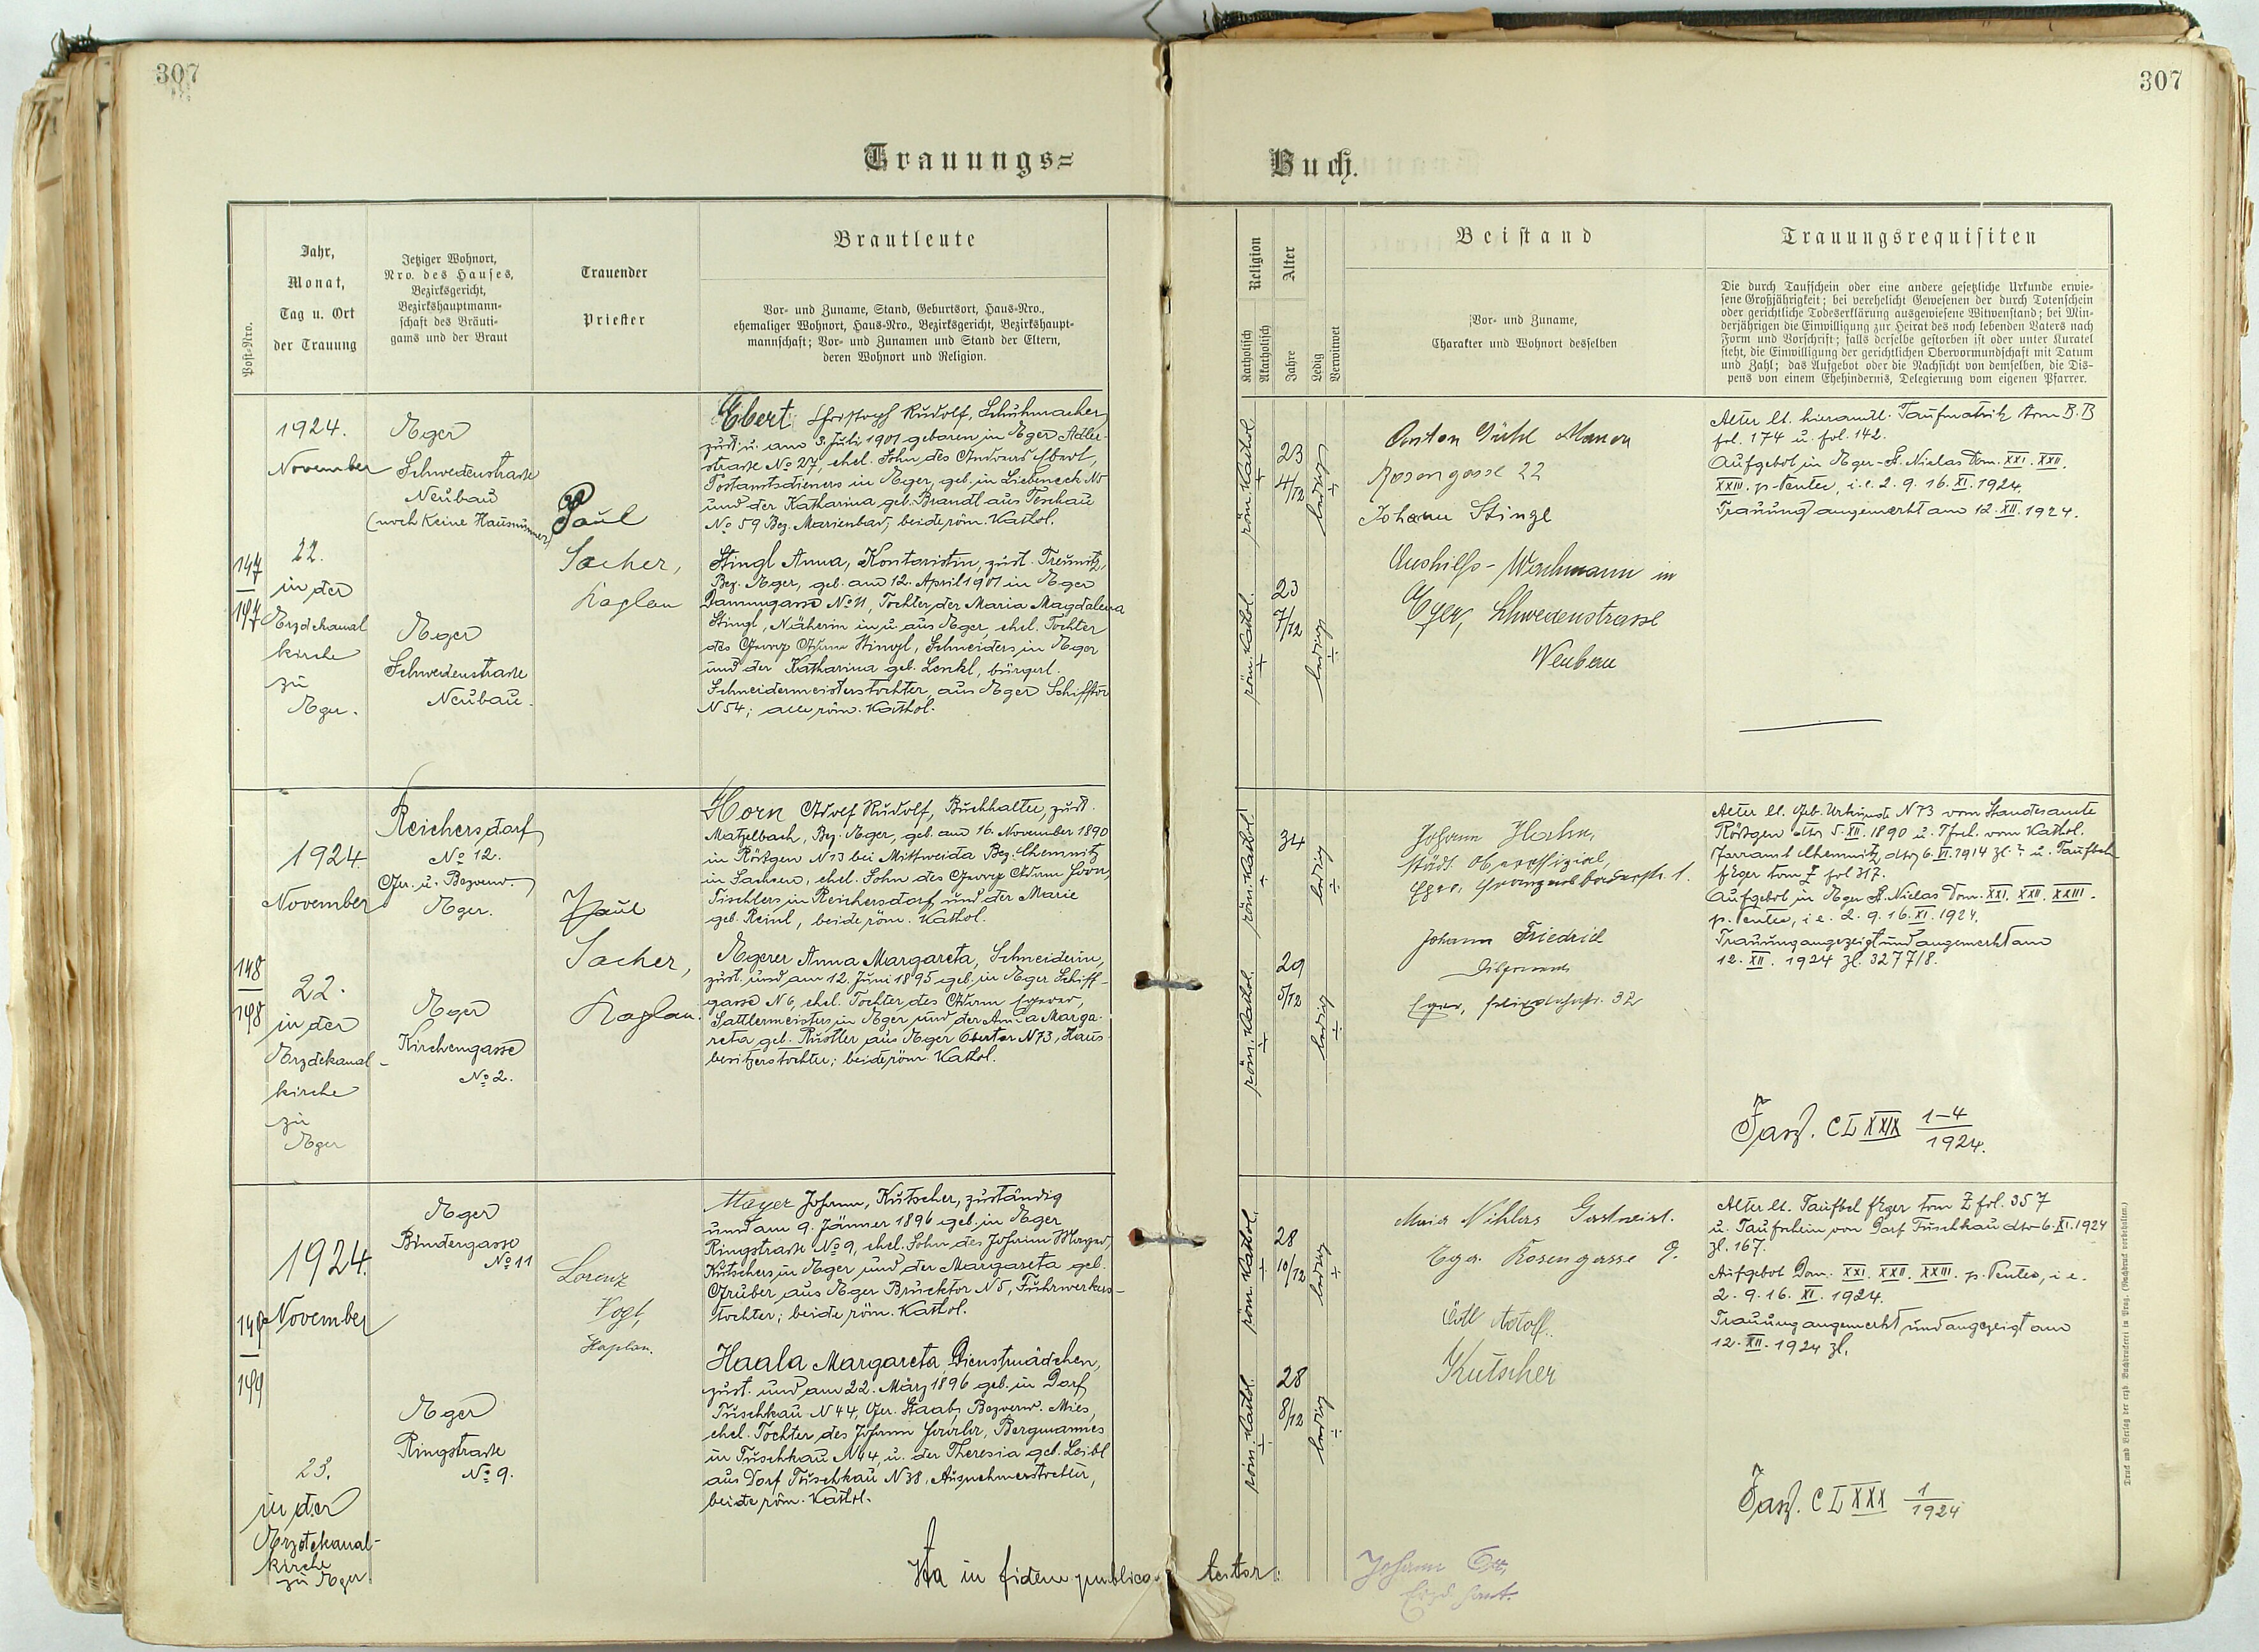 307
307
Trauungs=
Buch.
Post-Nro.
Jahr,
Monat,
Tag u. Ort
der Trauung
Jetziger Wohnort,
Nro. des Hauses,
Bezirksgericht,
Bezirkshauptmann-
schaft des Bräuti-
gams und der Braut
Trauender
Priester
Brautleute
Vor- und Zuname, Stand, Geburtsort, Haus-Nro.,
ehemaliger Wohnort, Haus-Nro., Bezirksgericht, Bezirkshaupt-
mannschaft; Vor- und Zunamen und Stand der Eltern,
deren Wohnort und Religion.
Religion
Katholisch
Akatholisch
Alter
Jahre
Ledig
Verwitwet
Beistand
Vor- und Zuname,
Charakter und Wohnort desselben
Trauungsrequisiten
Die durch Taufschein oder eine andere gesetzliche Urkunde erwie-
sene Großjährigkeit; bei verehelicht Gewesenen der durch Totenschein
oder gerichtliche Todeserklärung ausgewiesene Witwenstand; bei Min-
derjährigen die Einwilligung zur Heirat des noch lebenden Vaters nach
Form und Vorschrift; falls derselbe gestorben ist oder unter Kuratel
steht, die Einwilligung der gerichtlichen Obervormundschaft mit Datum
und Zahl; das Aufgebot oder die Nachsicht von demselben, die Dis-
pens von einem Ehehindernis, Delegierung vom eigenen Pfarrer.
147
147
1924.
November
22.
in der
Erzdekanal
kirche
zu
Eger.
Eger
Schwedenstraße
Neubau
(noch keine Hausnummer)
Eger
Schwedenstraße
Neubau.
Paul
Sacher,
Kaplan
Ebert Christoph Rudolf, Schuhmacher,
zust. u. am 3. Juli 1901 geboren in Eger Adler-
straße No 27, ehel. Sohn des Andreas Ebert,
Postamtsdieners in Eger, geb. in Liebeneck No
und der Katharina geb. Brandl aus Teschau
No 59 Bez. Marienbad, beide röm. Kathol.
Stingl Anna, Kontoristin, zust. Treunitz,
Bez. Eger, geb. am 12. April 1901 in Eger
Dammgasse No 11, Tochter der Maria Magdalena
Stingl, Näherin in u. aus Eger, ehel. Tochter
des Georg Adam Stingl, Schneiders in Eger
und der Katharina geb. Lenkl, bürgerl.
Schneidermeisterstochter, aus Eger Schifftor
N 54; alle röm. Kathol.
röm. Kathol.
23
4/12
ledig
röm. Kathol.
23
7/12
ledig
Anton Gühl Maurer
Rosengasse 22
Johann Stingl
Aushilfs-Wachmann in
Eger, Schwedenstrasse
Neubau
Alter lt. hieramtl. Taufmatrik tom B. B
fol. 174 u. fol. 142.
Aufgebot in Eger-St. Niclas Dom. XXI. XXII.
XXIII. p. Pentec, i. e. 2. 9. 16. XI. 1924.
Trauung angemerkt am 12. XII. 1924.
148
148
1924
November
22.
in der
Erzdekanal-
kirche
zu
Eger
Reichersdorf
No 12.
Ger. u. Bezverw.
Eger.
Eger
Kirchengasse
No 2.
Paul
Sacher,
Kaplan.
Horn Adolf Rudolf, Buchhalter, zust.
Matzelbach, Bez. Eger, geb. am 16. November 1890
in Röstgen N 73 bei Mittweida Bez. Chemnitz
in Sachsen, ehel. Sohn des Georg Adam Horn,
Tischlers in Reichersdorf und der Marie
geb. Reinl, beide röm. Kathol.
Egerer Anna Margareta, Schneiderin,
zust. und am 12. Juni 1895 geb. in Eger Schiff-
gasse N 6, ehel. Tochter des Adam Egerer,
Sattlermeisters in Eger und der Anna Marga-
reta geb. Rustler aus Eger Obertor N 73, Haus-
besitzerstochter; beide röm. Kathol.
röm. Kathol.
34
ledig
röm. Kathol.
29
5/12
ledig
Johann Hahn,
städt. Oberoffizial,
Eger, Franzensbaderstr. 1.
Johann Friedrich
Eger, 32
Alter lt. Geb. Urkunde N 73 vom Standesamte
Röstgen dto 5. XII. 1890 u. Tfsch. vom Kathol.
Pfarramt Chemnitz dto 6. VI. 1914 zl. ? u. Taufbch
Eger tom Z fol 317.
Aufgebot in Eger St. Niclas Dom. XXI. XXII. XXIII.
p. Pentec, i e. 2. 9. 16. XI. 1924.
Trauung angezeigt und angemerkt am
12. XII. 1924 zl. 3277/8.
Fasz. CLXXIX 1-4
1924.
149
149
1924.
November
23.
in der
Erzdekanal-
kirche
zu Eger.
Eger
Bindergasse
No 11
Eger
Ringstraße
No 9.
Lorenz
Vogl,
Kaplan.
Mayer Johann, Kutscher, zuständig
und am 9. Jänner 1896 geb. in Eger
Ringstraße No 9, ehel. Sohn des Johann Mayer,
Kutschers in Eger und der Margareta geb.
Gruber aus Eger Brucktor N 5, Fuhrwerkers-
tochter; beide röm. Kathol.
Haala Margareta Dienstmädchen,
zust. und am 22. März 1896 geb. in Dorf
Tuschkau N 44, Ger. Staab, Bezverw. Mies,
ehel. Tochter des Johann Haala, Bergmannes
in Tuschkau N 44, u. der Theresia geb. Leibl
aus Dorf Tuschkau N 38, Ausnehmerstochter,
beide röm. Kathol.
röm. Kathol.
28
10/12
ledig
röm. Kathol.
28
8/12
ledig
Gastwirt.
Eger Rosengasse 9.
Adolf.
Kutscher
Alter lt. Taufbch Eger tom Z fol. 357
u. Taufschein von Dorf Tuschkau dto 6. XI. 1924
zl. 167.
Aufgebot Dom. XXI. XXII. XXIII. p. Pentec, i e.
2. 9. 16. XI. 1924.
Trauung angemerkt und angezeigt am
12. XII. 1924 zl.
Fasz. CLXXX 1
1924
Ita in fidem publicam testor:
Johann
Druck und Verlag der erzb. Buchdruckerei in Prag. (Nachdruck vorbehalten.)